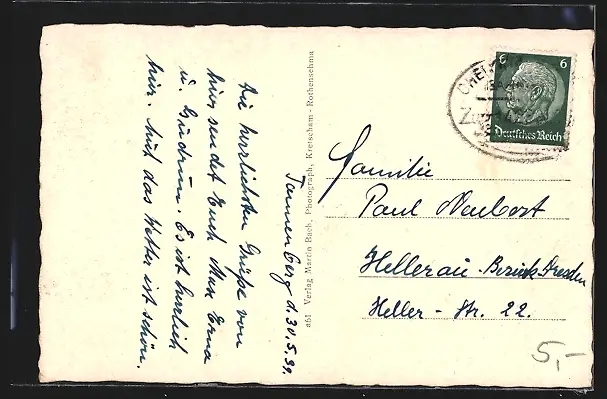 Tannenberg d. 30.5.39.
Die herzlichsten Grüße von
hier sendet Euch Max Erna
u. Gudrun. Es ist herrlich
hier. Auch das Wetter ist schön.
861 Verlag Martin Bach, Photograph, Kretscham-Rothensehma
6 6
Deutsches Reich
CHEM
Zug
Familie
Paul Neubert
Hellerau-Bezirk Dresden
Heller-Str. 22.
5,-